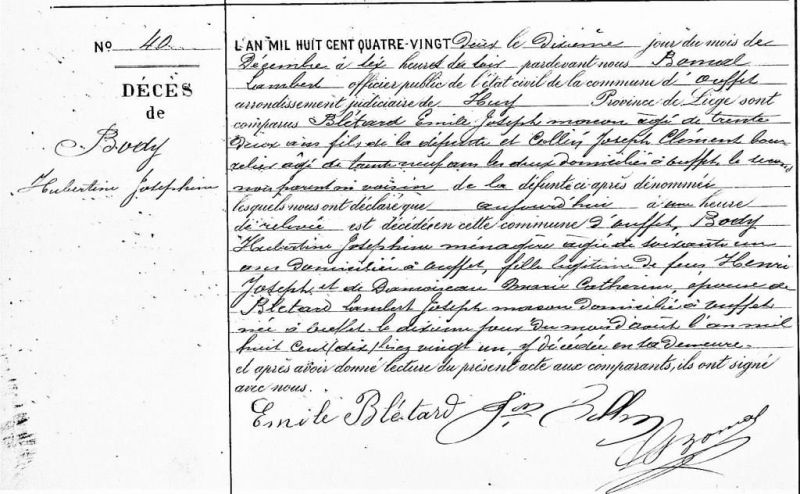 N° 40.
DÉCÈS
de
Body
Hubertine Josephine
L'AN MIL HUIT CENT QUATRE-VINGT Deux le Dixième jour du mois de
Décembre à six heures du soir pardevant nous Bomal
Lambert officier public de l'état civil de la commune d'Ouffet
arrondissement judiciaire de Huy Province de Liège sont
comparus Blétard Emile Joseph maçon agé de trente
Deux ans fils de la défunte et Collin Joseph Clément bour
relier âgé de trente neuf ans les deux domiciliés à ouffet le second
non parent on voisin de la défunte ci après dénommée
lesquels nous ont déclaré que aujourd'hui à une heure
de relevée est décédée en cette commune d'ouffet Body
Hubertine Josephine ménagère agée de soixante un
ans Domiciliée à ouffet, fille légitime de feus Henri
Joseph et de Damoiseau Marie Catherine, épouse de
Blétard Lambert Joseph maçon domicilié à ouffet
née à ouffet le dixième jour du mois d'aout l'an mil
huit cent (dix) vingt un, y décédée en sa demeure.
et après avoir donné lecture du présent acte aux comparants, ils ont signé
avec nous.
Emile Blétard Jos Collin
L Bomal